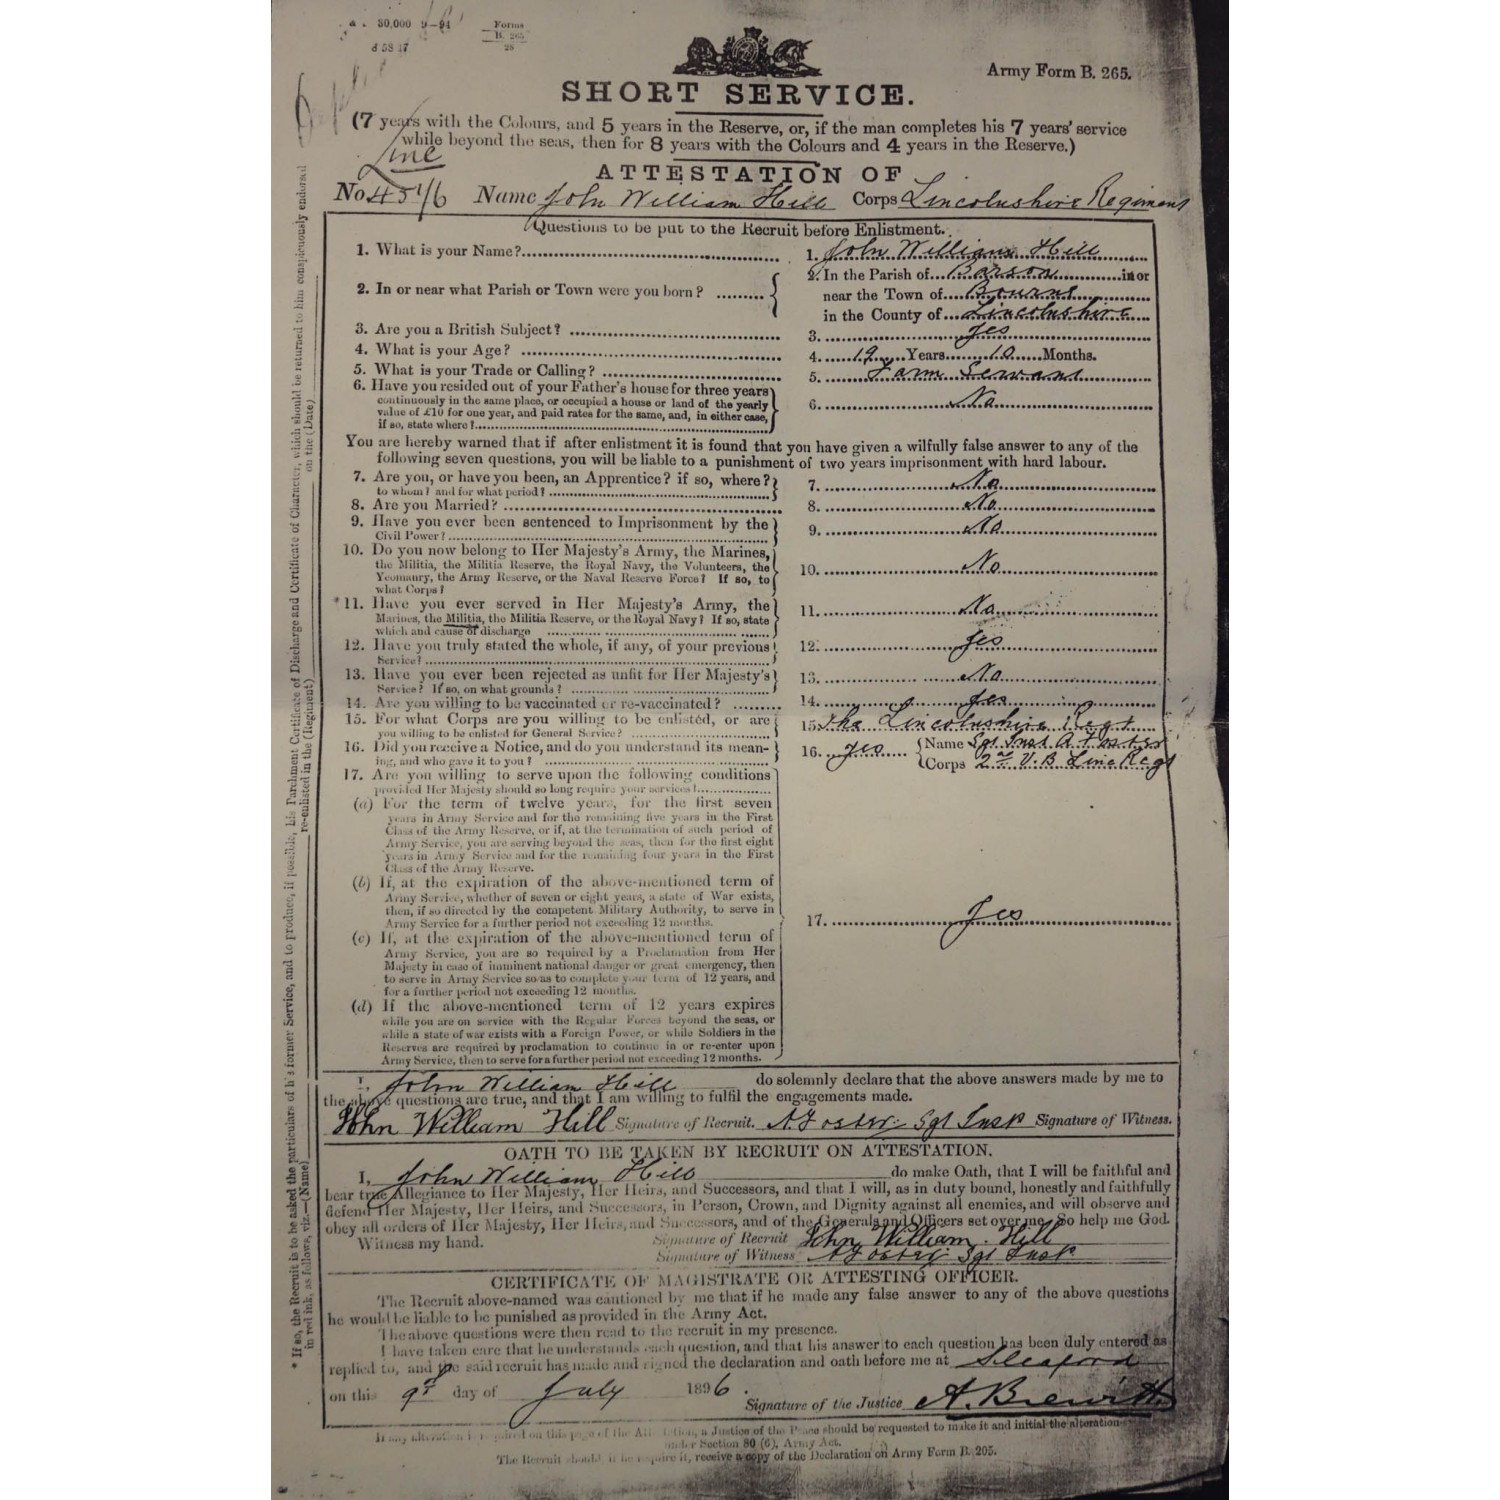 30,000 9—94 Forms
B. 265
28
Army Form B. 265.
SHORT SERVICE.
(7 years with the Colours, and 5 years in the Reserve, or, if the man completes his 7 years' service
while beyond the seas, then for 8 years with the Colours and 4 years in the Reserve.)
Linc
ATTESTATION OF
No. 4516 Name John William Hill Corps Lincolnshire Regiment
Questions to be put to the Recruit before Enlistment.
1. What is your Name? 1. John William Hill
2. In or near what Parish or Town were you born? 2. In the Parish of in or
near the Town of Bourne
in the County of Lincolnshire
3. Are you a British Subject? 3. Yes
4. What is your Age? 4. 19 Years 10 Months.
5. What is your Trade or Calling? 5. Farm Servant
6. Have you resided out of your Father's house for three years 6. No
continuously in the same place, or occupied a house or land of the yearly
value of £10 for one year, and paid rates for the same, and, in either case,
if so, state where?
You are hereby warned that if after enlistment it is found that you have given a wilfully false answer to any of the
following seven questions, you will be liable to a punishment of two years imprisonment with hard labour.
7. Are you, or have you been, an Apprentice? if so, where? 7. No
to whom? and for what period?
8. Are you Married? 8. No
9. Have you ever been sentenced to Imprisonment by the 9. No
Civil Power?
10. Do you now belong to Her Majesty's Army, the Marines, 10. No
the Militia, the Militia Reserve, the Royal Navy, the Volunteers, the
Yeomanry, the Army Reserve, or the Naval Reserve Force? If so, to
what Corps?
*11. Have you ever served in Her Majesty's Army, the 11. No
Marines, the Militia, the Militia Reserve, or the Royal Navy? If so, state
which and cause of discharge
12. Have you truly stated the whole, if any, of your previous 12. Yes
Service?
13. Have you ever been rejected as unfit for Her Majesty's 13. No
Service? If so, on what grounds?
14. Are you willing to be vaccinated or re-vaccinated? 14. Yes
15. For what Corps are you willing to be enlisted, or are 15. The Lincolnshire Regt
you willing to be enlisted for General Service?
16. Did you receive a Notice, and do you understand its mean- 16. Yes Name Sgt Inst A Foster
ing, and who gave it to you? Corps 2nd V. B Linc Regt
17. Are you willing to serve upon the following conditions
provided Her Majesty should so long require your services?
(a) For the term of twelve years, for the first seven
years in Army Service and for the remaining five years in the First
Class of the Army Reserve, or if, at the termination of such period of
Army Service, you are serving beyond the seas, then for the first eight
years in Army Service and for the remaining four years in the First
Class of the Army Reserve.
(b) If, at the expiration of the above-mentioned term of
Army Service, whether of seven or eight years, a state of War exists,
then, if so directed by the competent Military Authority, to serve in
Army Service for a further period not exceeding 12 months. 17. Yes
(c) If, at the expiration of the above-mentioned term of
Army Service, you are so required by a Proclamation from Her
Majesty in case of imminent national danger or great emergency, then
to serve in Army Service so as to complete your term of 12 years, and
for a further period not exceeding 12 months.
(d) If the above-mentioned term of 12 years expires
while you are on service with the Regular Forces beyond the seas, or
while a state of war exists with a Foreign Power, or while Soldiers in the
Reserves are required by proclamation to continue in or re-enter upon
Army Service, then to serve for a further period not exceeding 12 months.
I, John William Hill do solemnly declare that the above answers made by me to
the above questions are true, and that I am willing to fulfil the engagements made.
John William Hill Signature of Recruit. A Foster Sgt Inst Signature of Witness.
OATH TO BE TAKEN BY RECRUIT ON ATTESTATION.
I, John William Hill do make Oath, that I will be faithful and
bear true Allegiance to Her Majesty, Her Heirs, and Successors, and that I will, as in duty bound, honestly and faithfully
defend Her Majesty, Her Heirs, and Successors, in Person, Crown, and Dignity against all enemies, and will observe and
obey all orders of Her Majesty, Her Heirs, and Successors, and of the Generals and Officers set over me. So help me God.
Witness my hand. Signature of Recruit John William Hill
Signature of Witness A Foster Sgt Inst
CERTIFICATE OF MAGISTRATE OR ATTESTING OFFICER.
The Recruit above-named was cautioned by me that if he made any false answer to any of the above questions
he would be liable to be punished as provided in the Army Act.
The above questions were then read to the recruit in my presence.
I have taken care that he understands each question, and that his answer to each question has been duly entered as
replied to, and the said recruit has made and signed the declaration and oath before me at Sleaford
on this 9th day of July 1896.
Signature of the Justice A. Brewitt
If any alteration is required on this page of the Attestation, a Justice of the Peace should be requested to make it and initial the alteration
under Section 80 (6), Army Act.
The Recruit should, if he require it, receive a copy of the Declaration on Army Form B. 205.
* If so, the Recruit is to be asked the particulars of his former Service, and to produce, if possible, his Parchment Certificate of Discharge and Certificate of Character, which should be returned to him conspicuously endorsed
in red ink, as follows, viz.—(Name) re-enlisted in the (Regiment) on the (Date)